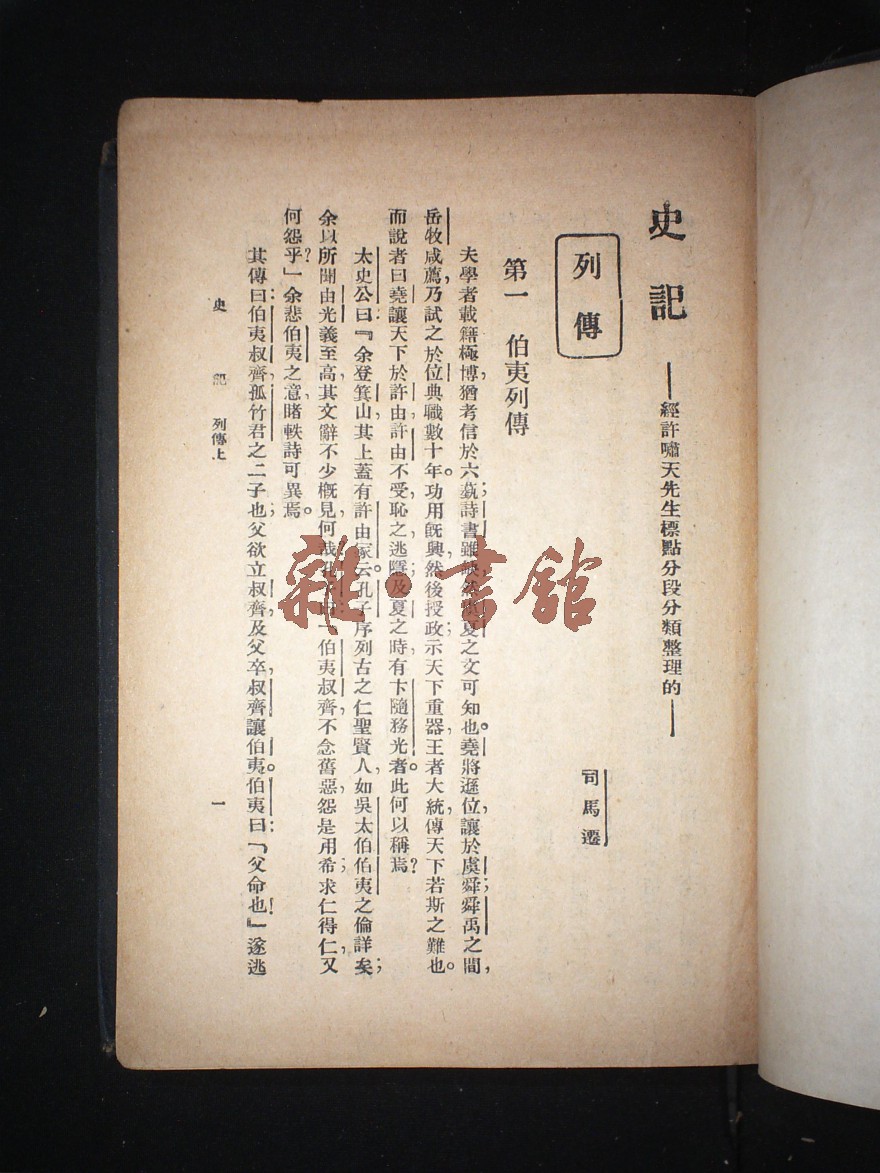 史記
——經許嘯天先生標點分段分類整理的——
列傳
司馬遷
第一　伯夷列傳
夫學者載籍極博，猶考信於六蓺；詩書雖缺，然虞夏之文可知也。堯將遜位，讓於虞舜；舜禹之間，
岳牧咸薦，乃試之於位，典職數十年。功用旣興，然後授政；示天下重器，王者大統，傳天下若斯之難也。
而說者曰堯讓天下於許由，許由不受，恥之，逃隱；及夏之時，有卞隨務光者。此何以稱焉？
太史公曰：『余登箕山，其上蓋有許由冢云。孔子序列古之仁聖賢人，如吳太伯伯夷之倫詳矣；
余以所聞由光義至高，其文辭不少槪見，何哉？孔子曰：「伯夷叔齊，不念舊惡，怨是用希；求仁得仁，又
何怨乎？」余悲伯夷之意，睹軼詩可異焉。
其傳曰：伯夷叔齊，孤竹君之二子也；父欲立叔齊，及父卒，叔齊讓伯夷。伯夷曰：「父命也！』遂逃
史記　列傳上　一
雜·書館